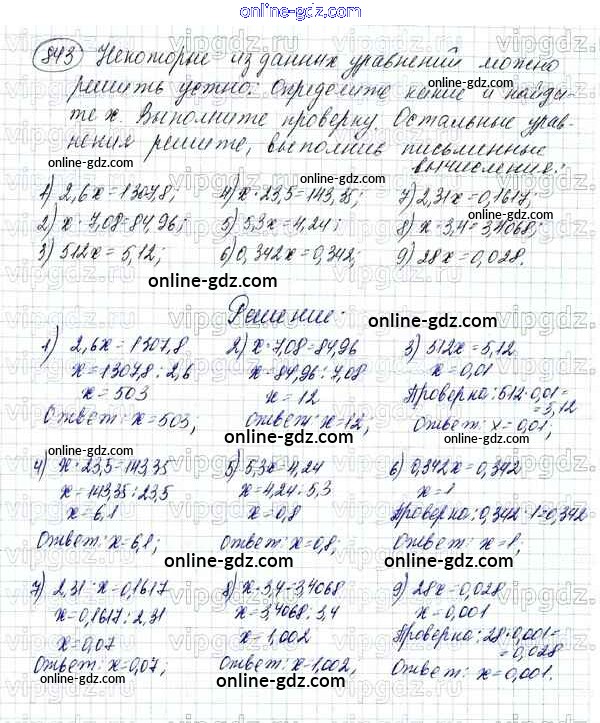 online-gdz.com
843 Некоторые из данных уравнений можно
решить устно. Определите какие и найди-
те х. Выполните проверку. Остальные урав-
нения решите, выполнив письменные
вычисления:
1) 2,6х=1307,8; 4) х·23,5=143,35; 7) 2,31х=0,1617;
2) х·7,08=84,96; 5) 5,3х=4,24; 8) х·3,4=3,4068;
3) 512х=5,12; 6) 0,342х=0,342; 9) 28х=0,028.
online-gdz.com
Решение:
1) 2,6х=1307,8 2) х·7,08=84,96 3) 512х=5,12
х=1307,8:2,6 х=84,96:7,08 х=0,01
х=503 х=12 Проверка: 512·0,01=
=5,12
Ответ: х=503; Ответ: х=12; Ответ: х=0,01;
4) х·23,5=143,35 5) 5,3х=4,24 6) 0,342х=0,342
х=143,35:23,5 х=4,24:5,3 х=1
х=6,1 х=0,8 Проверка: 0,342·1=0,342
Ответ: х=6,1; Ответ: х=0,8; Ответ: х=1;
7) 2,31·х=0,1617 8) х·3,4=3,4068 9) 28х=0,028
х=0,1617:2,31 х=3,4068:3,4 х=0,001
х=0,07 х=1,002 Проверка: 28·0,001=
=0,028
Ответ: х=0,07; Ответ: х=1,002; Ответ: х=0,001.
online-gdz.com